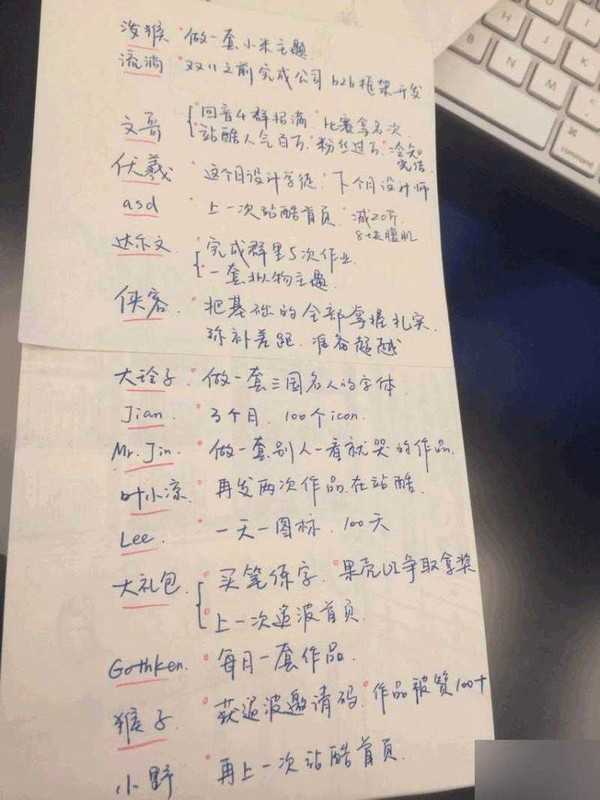 泼猴 做一套小米主题
流淌 双11之前完成公司b2b框架开发
文哥 回音4群招满 比赛拿名次
站酷人气百万 粉丝过万
伏羲 这个月设计学徒 下个月设计师
asd 上一次站酷首页 减20斤
8块腹肌
达尔文 完成群里5次作业
一套拟物主题
侠客 把基础的全部掌握扎实
弥补差距 准备超越
大诠子 做一套三国名人的字体
Jian 3个月 100个icon
Mr.Jin 做一套别人一看就哭的作品
叶小凉 再发两次作品在站酷
Lee 一天一图标 100天
大礼包 买笔练字 果壳UI争取拿奖
上一次追波首页
Gothken 每月一套作品
猴子 获追波邀请码 作品被赞100+
小野 再上一次站酷首页
command